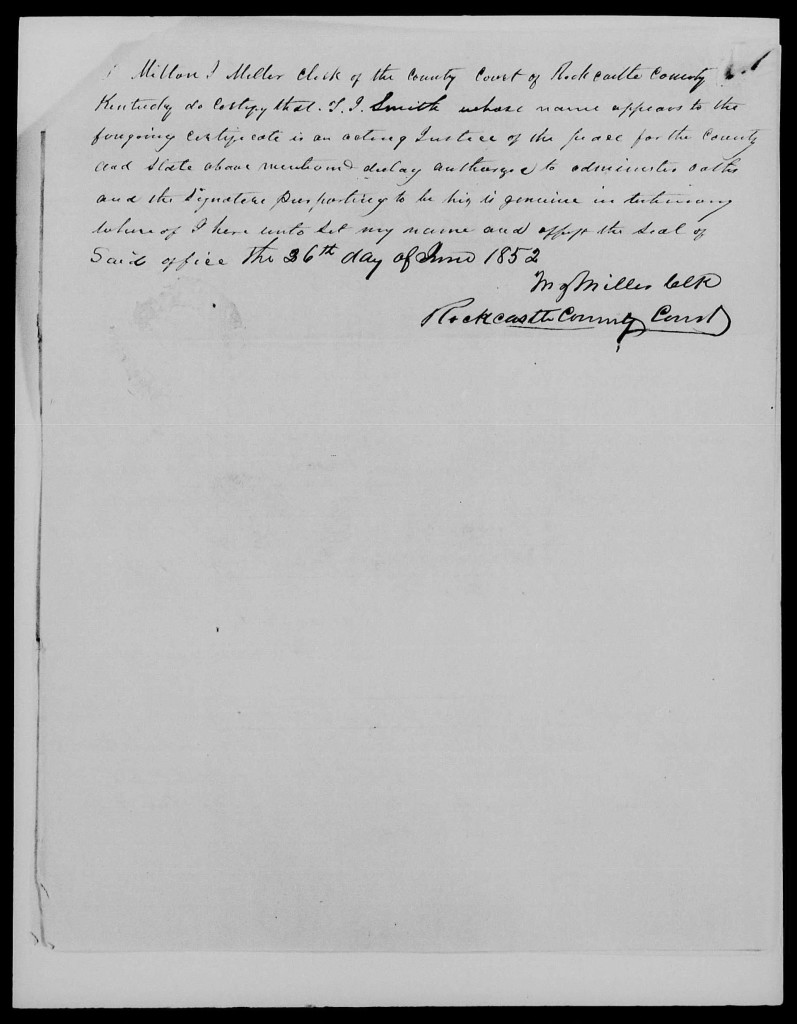 I Milton J Miller Clerk of the County Court of Rockcastle County
Kentucky do Certify that T. J. Smith whose name appears to the
foregoing certificate is an acting Justice of the peace for the County
and State above mentiond duley authorise to administer oaths
and the Signature purporting to be his is genuine in testimony
whereof I here unto Set my name and affix the Seal of
Said office the 26th day of June 1852
M J Miller Clk
Rockcastle County Court